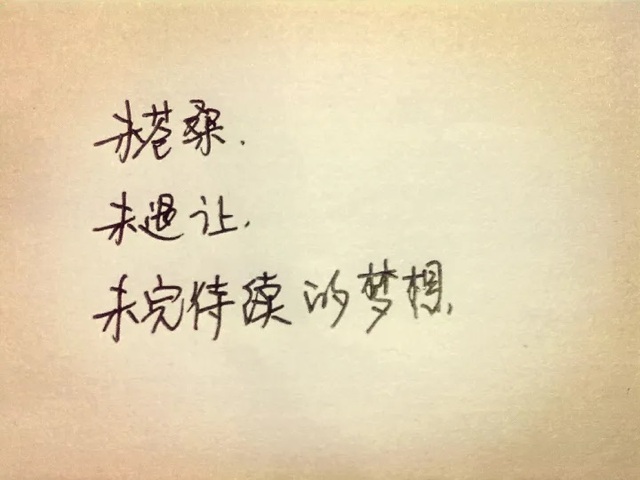 未苍桑.
未退让.
未完待续的梦想.